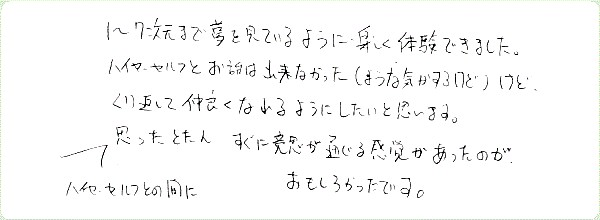 1〜7次元まで夢を見ているように楽しく体験できました。
ハイヤーセルフとお話は出来なかった(ような気がするけど)けど、
くり返して仲良くなれるようにしたいと思います。
思ったとたん すぐに意思が通じる感覚があったのが、
ハイヤーセルフとの間に
おもしろかったです。